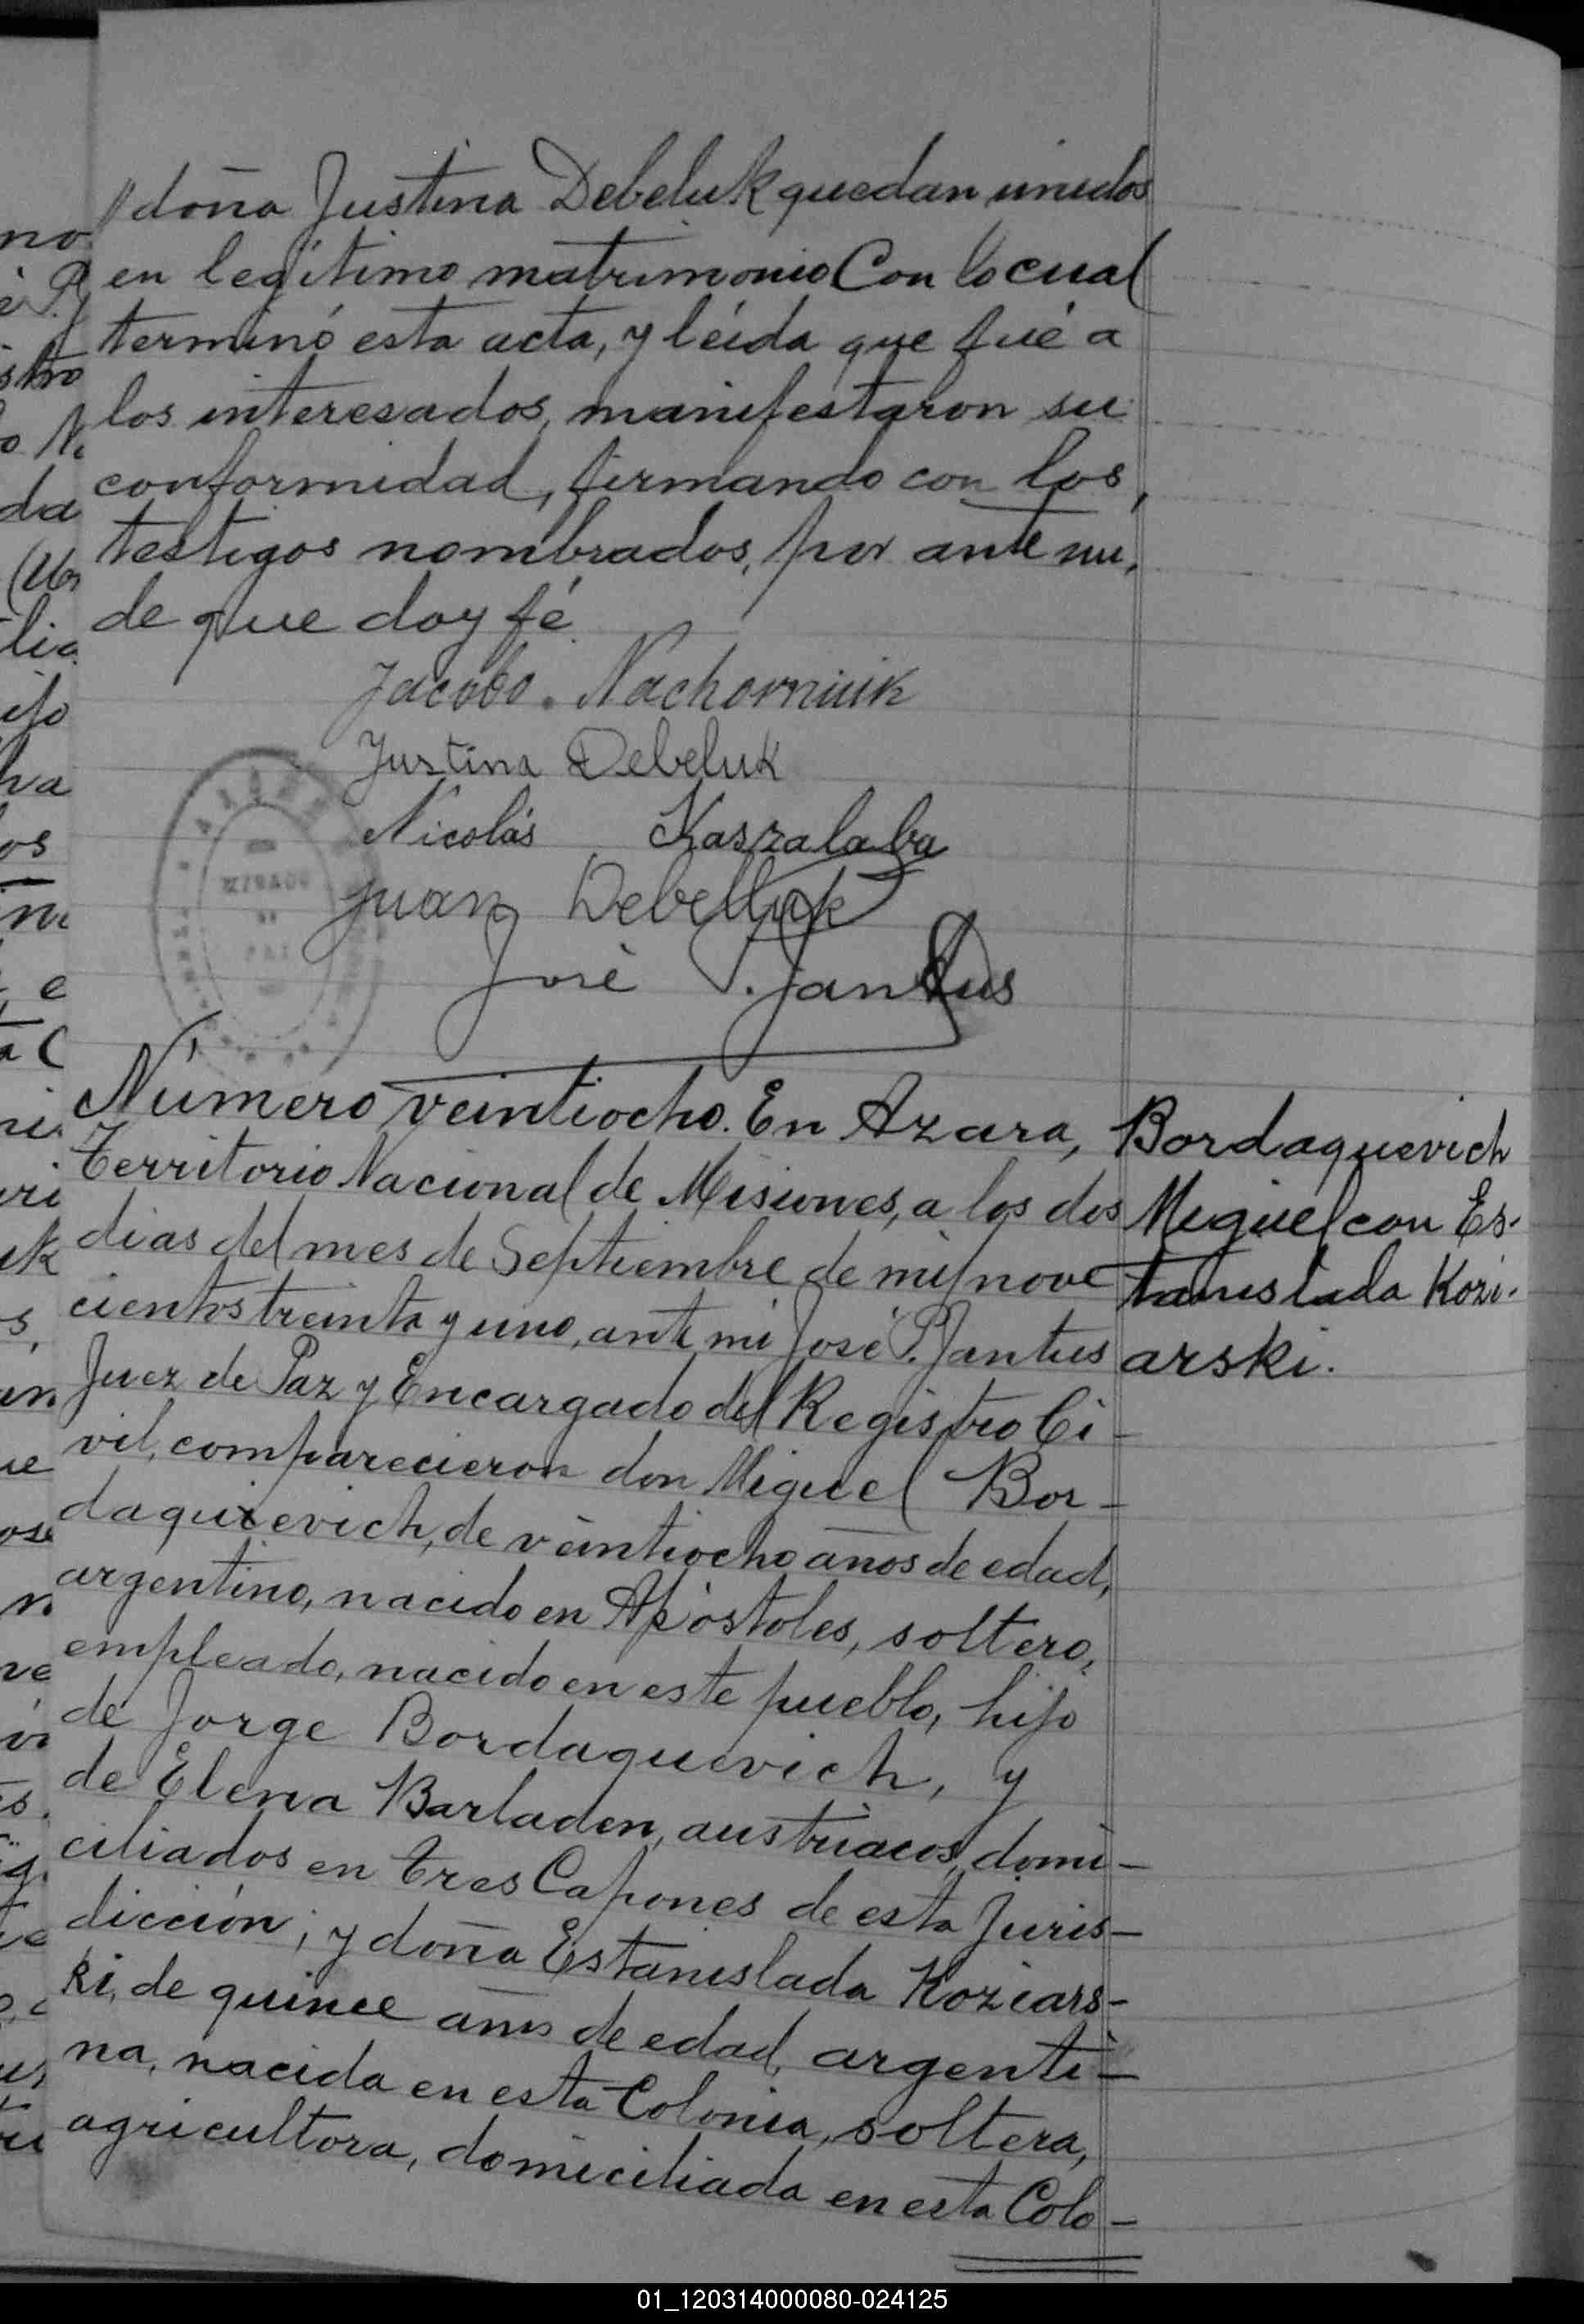 // doña Justina Debeluk quedan unidos
en legítimo matrimonio Con lo cual
terminó esta acta, y leída que fué a
los interesados, manifestaron su
conformidad, firmando con los
testigos nombrados, por ante mi,
de que doy fé.
Jacobo. Nachorniuk
Justina Debeluk
Nicolás Kaszalaba
Juan Debelluk
José P. Jantus
Número veintiocho. En Azara,
Territorio Nacional de Misiones, a los dos
dias del mes de Septiembre de mil nove
cientos treinta y uno, ante mi José P. Jantus
Juez de Paz y Encargado del Registro Ci-
vil, comparecieron don Miguel Bor-
daquievich, de veintiocho años de edad,
argentino, nacido en Apóstoles, soltero,
empleado, nacido en este pueblo, hijo
de Jorge Bordaquevich, y
de Elena Barladen, austriacos, domi-
ciliados en Tres Capones de esta Juris-
dicción; y doña Estanislada Koziars-
ki, de quince años de edad, argenti-
na, nacida en esta Colonia, soltera,
agricultora, domiciliada en esta Colo-
Bordaquevich
Miguel con Es-
tanislada Kozi-
arski.
01_120314000080-024125